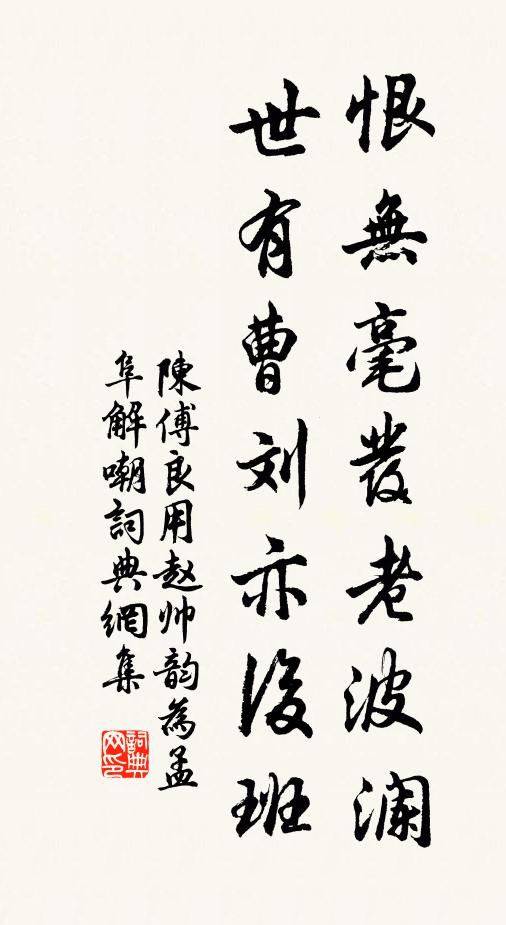 恨無毫發老波澜
世有曹刘亦後班
陳傅良用赵帅韵為孟
阜解嘲詞典網集
詞典网印